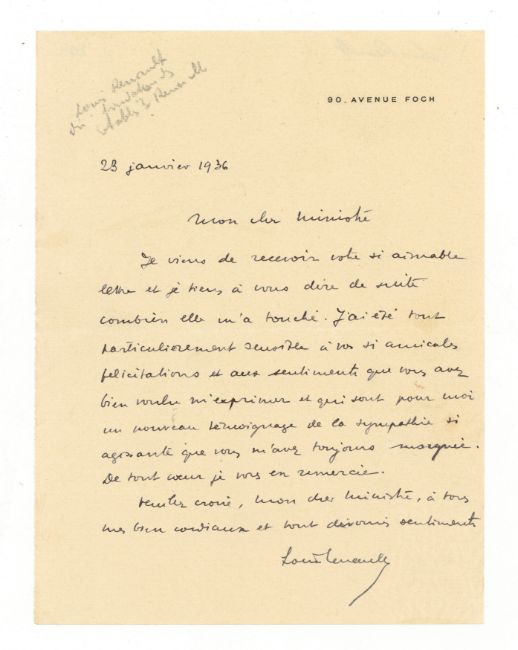 Louis Renault
fondateur des
établts Renault
90. AVENUE FOCH
23 janvier 1936
Mon cher Ministre
Je viens de recevoir votre si aimable
lettre et je tiens à vous dire de suite
combien elle m'a touché. J'ai été tout
particulièrement sensible à vos si amicales
félicitations et aux sentiments que vous avez
bien voulu m'exprimer et qui sont pour moi
un nouveau témoignage de la sympathie si
agissante que vous m'avez toujours marquée.
De tout coeur je vous en remercie.
Veuillez croire, mon cher Ministre, à tous
mes bien cordiaux et tout dévoués sentiments
Louis Renault